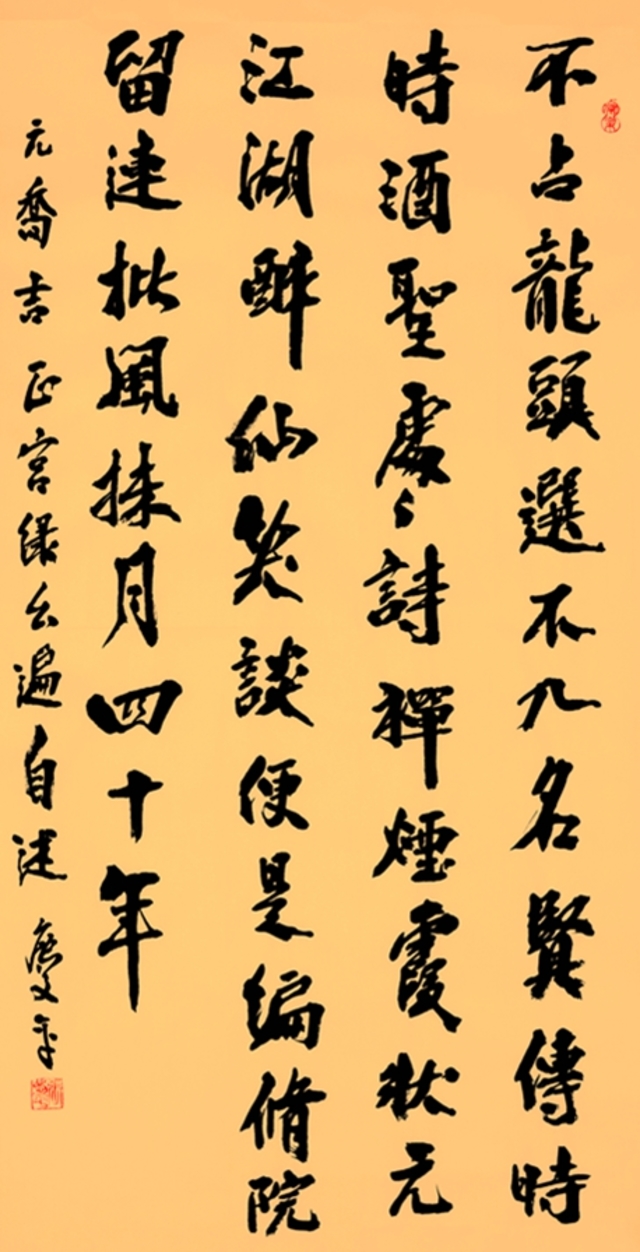 不占龍頭選不入名賢傳時
時酒聖處〻詩禪煙霞狀元
江湖酔仙笑談便是編脩院
留連批風抹月四十年
元喬吉正宮綠幺遍自述